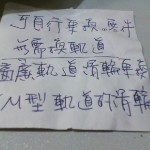 可自行更換零件
無需換軌道
窗簾軌道滑輪更換
M型軌道的滑輪